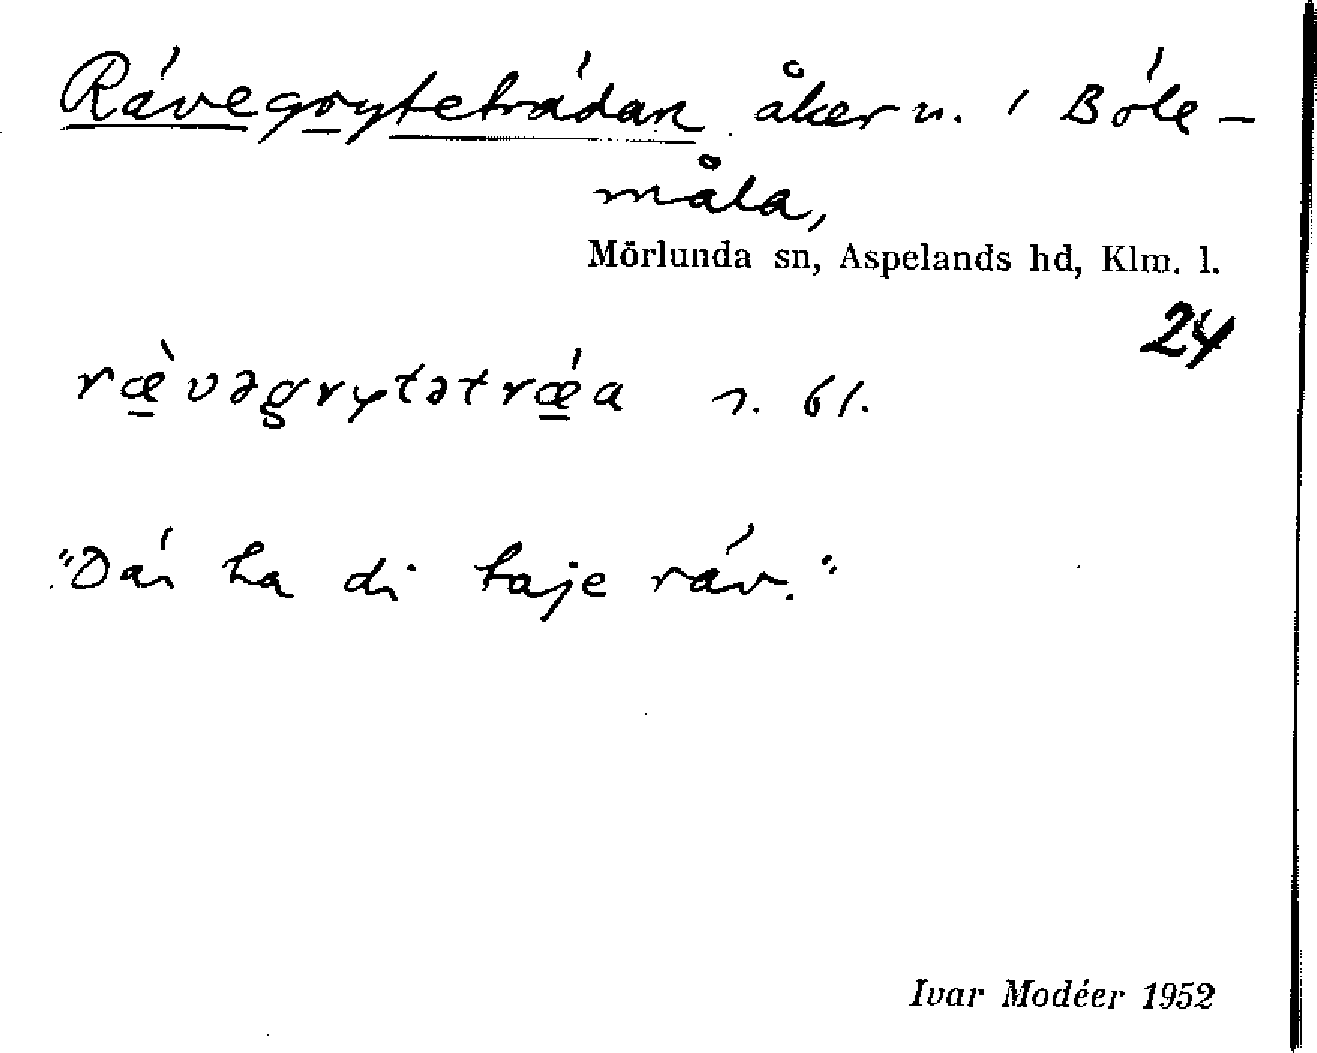 Rävegryteträdan åker n. i Böle-
måla,
Mörlunda sn, Aspelands hd, Klm. l.
24
ræ̀vəgrytətrǽa n. bf.
"Där ha di taje räv."
Ivar Modéer 1952